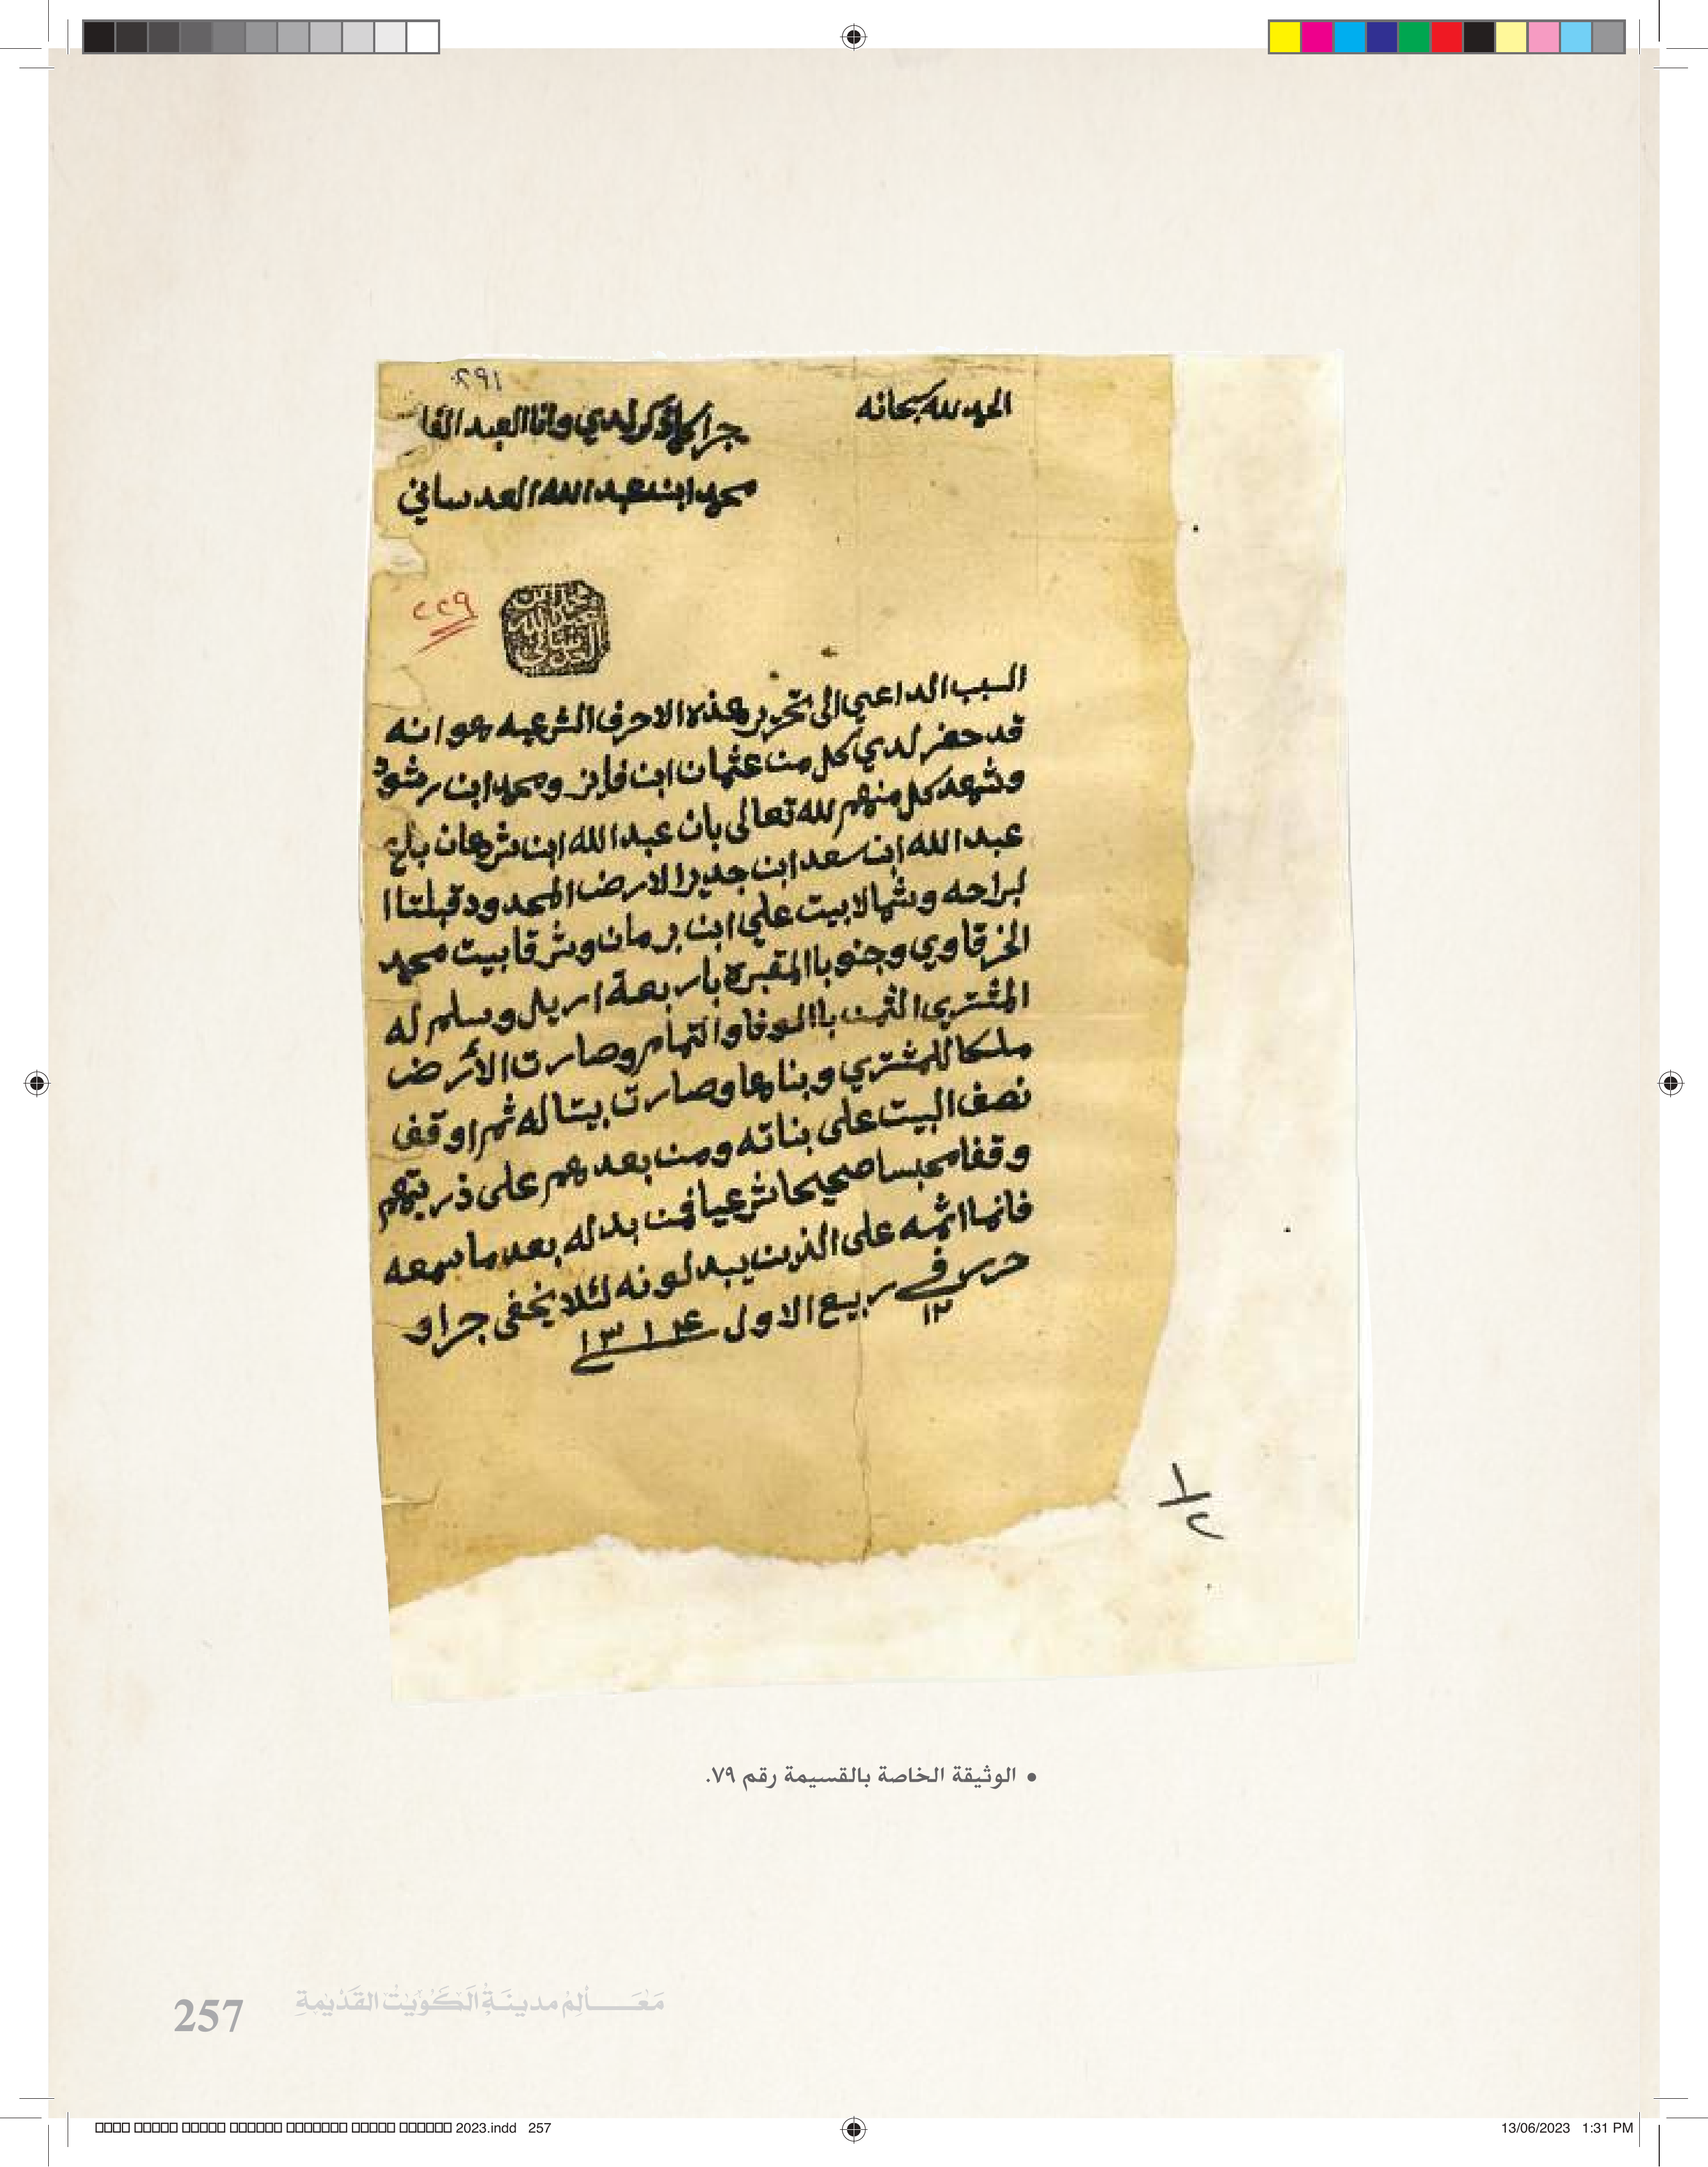 الحمد لله سبحانه
جرا كما ذكر لدي وانا العبد الفا
محمد ابن عبد الله العدساني
٢٢٩
السبب الداعي الى تحرير هذه الاحرف الشرعيه هو انه
قد حضر لدي كل من عثمان ابن فايز ومحمد ابن رشود
وشهد كل منهم لله تعالى بان عبد الله ابن شرهان باع
عبد الله ابن سعد ابن جدير الارض المحدود قبلتا ا
لبراحه وشمالا بيت علي ابن برمان وشرقا بيت محمد
الخرقاوي وجنوبا المقبرة باربعة اريل وسلم له
المشتري الثمن باالوفا والتمام وصارت الأرض
ملكا للمشتري وبناها وصارت بيتا له ثم اوقف
نصف البيت على بناته ومن بعدهم على ذريتهم
وقفا محبسا صحيحا شرعيا فمن بدله بعد ما سمعه
فانما اثمه على الذين يبدلونه لئلا يخفى جرا و
حرر في ١٢ ربيع الاول ١٣١٤
١/٢
• الوثيقة الخاصة بالقسيمة رقم ٧٩.
257 مَعَـــالِمُ مدينَةِ الكُوَيْتِ القَدِيْمَةِ
2023.indd 257
13/06/2023 1:31 PM